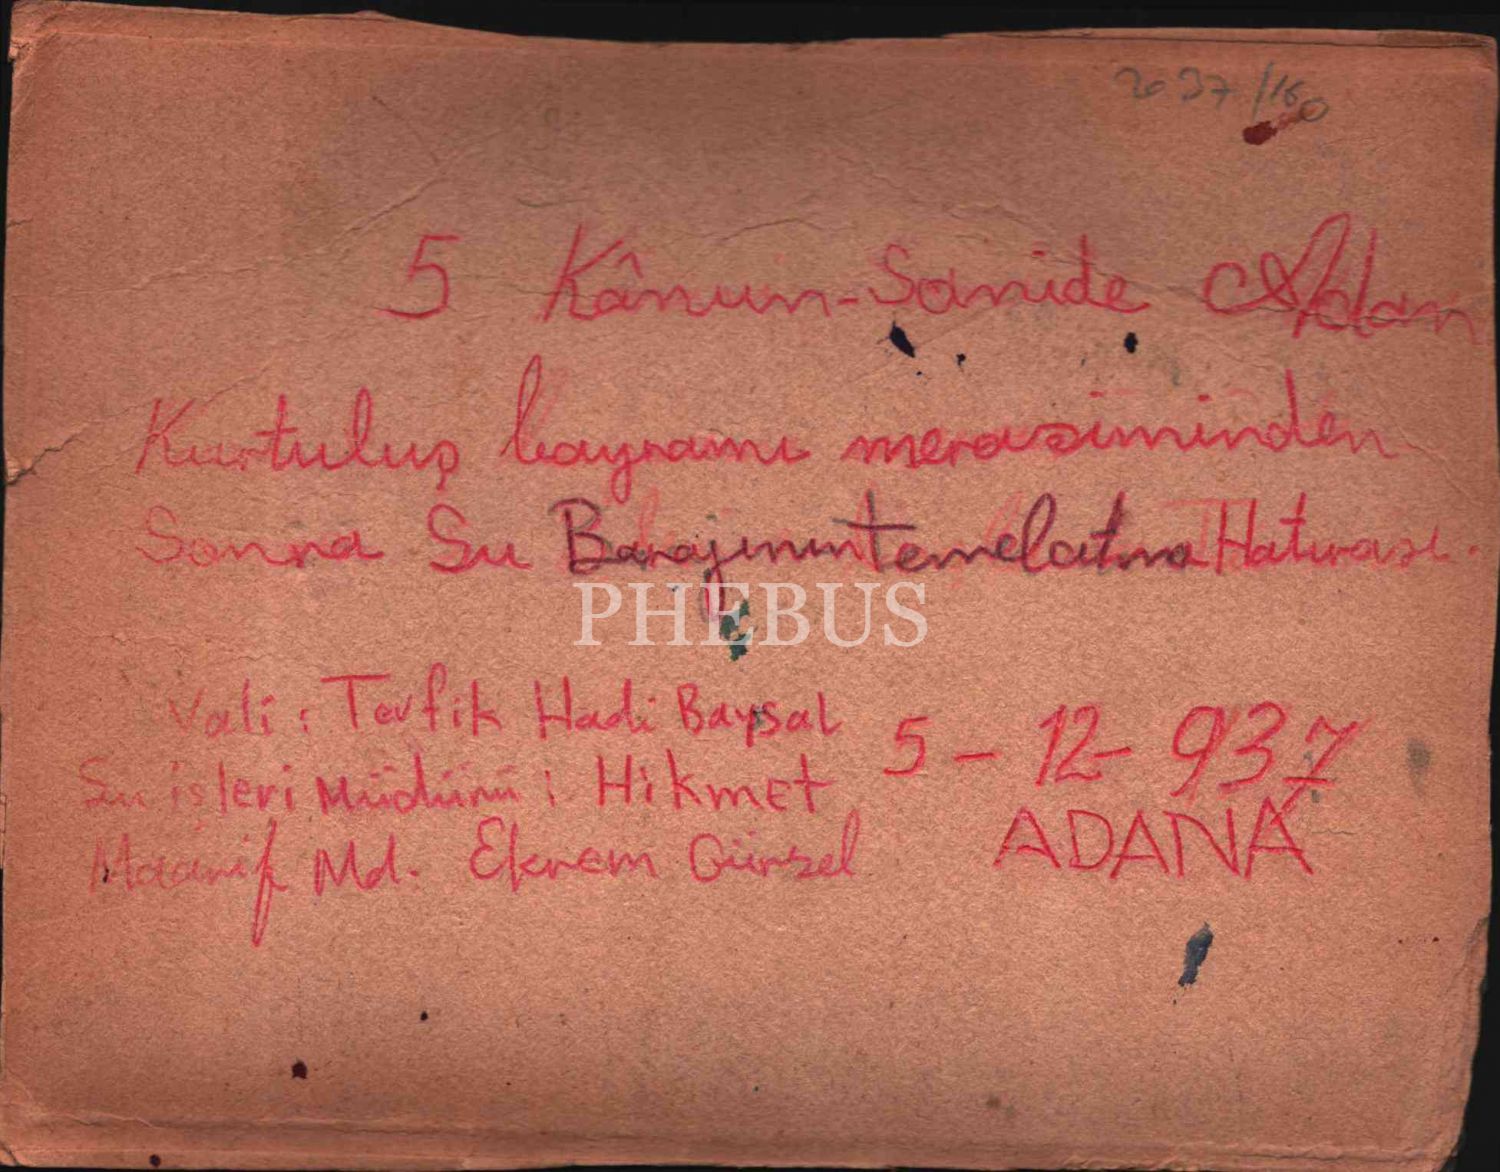 2037/160
5 Kânun-Sanide Adan
Kurtuluş bayramı merasiminden
Sonra Su Barajının temelatma Hatırası.
PHEBUS
Vali: Tevfik Hadi Baysal
Su işleri Müdürü: Hikmet
5-12-937
Maarif Md. Ekrem Gürsel
ADANA